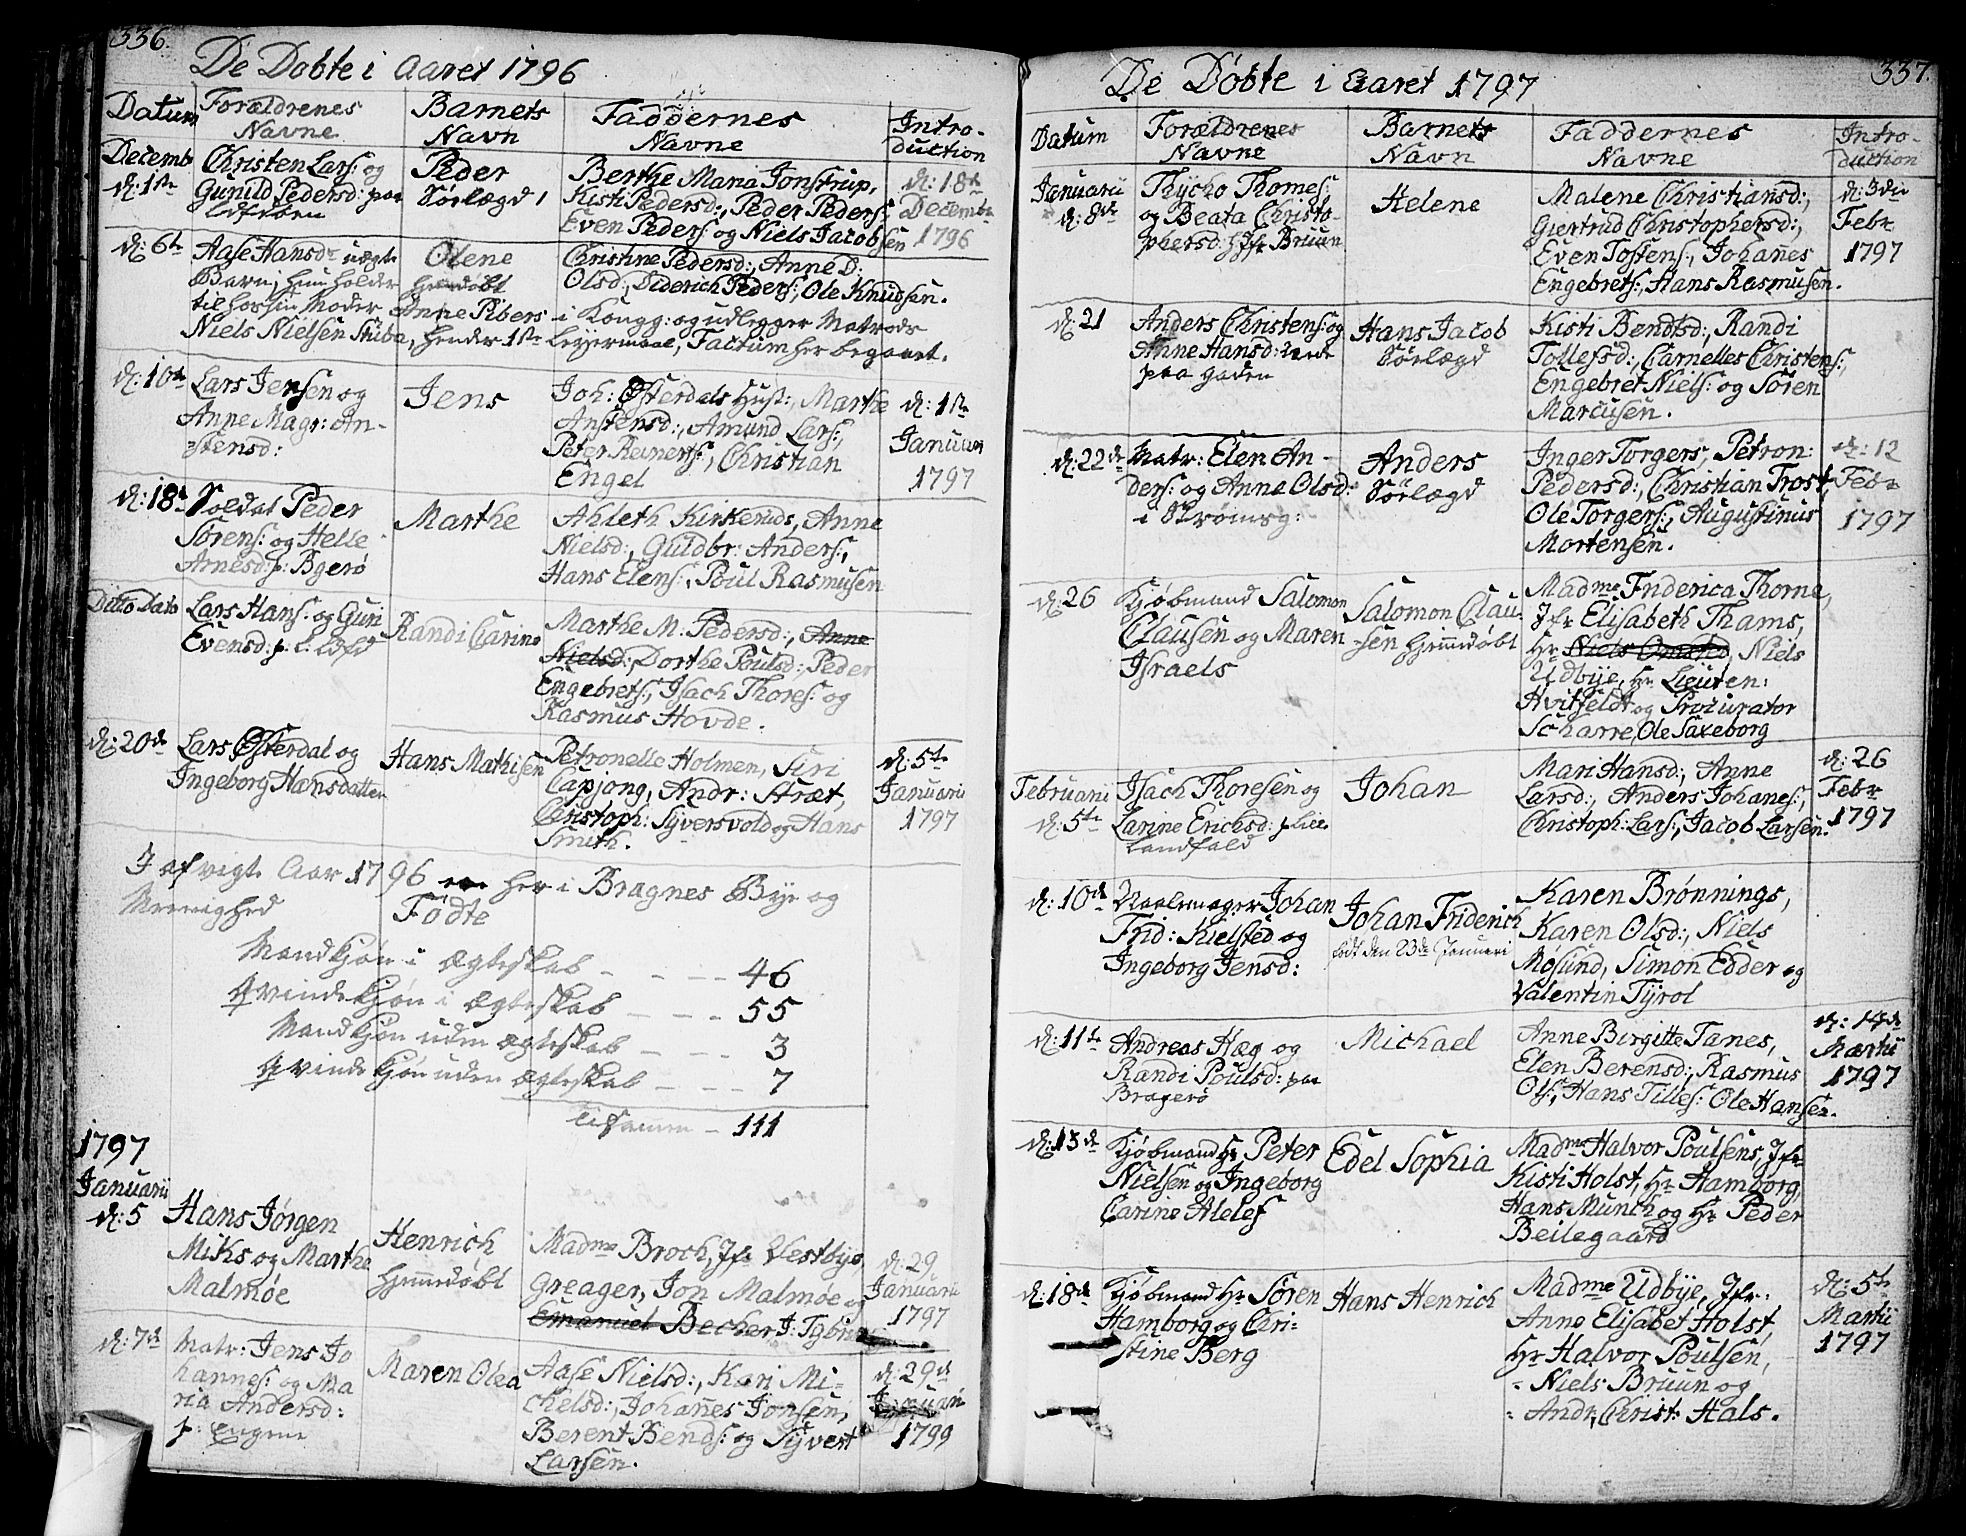 336.
De Døbte i Aaret 1796
Datum
Forældrenes
Navne
Barnets
Navn
Faddernes
Navne
Intro-
duction
Decemb
d: 1ste
Christen Lars: og
Gunild Pedersd: paa
Peder
Sørlægd
Berthe Maria Jonstrup,
Kisti Pedersd:, Peder Peders:
Even Peders: og Niels Jacobsen
d: 18de
Decembr
1796
d: 6te
Aase Hansdr uægte
Barn, hun holder
til hos sin Moder Anne Pibers i Kongg: og udlegger Matrods
Niels Nielsen Skiba, hendes 1ste Leyermaal, Factum her begaaet.
Olene
hjemdøbt
Christine Pedersd:, Anne D:
Olsd:, Diderich Peders:, Ole Knudsen.
d: 10de
Lars Jensen og
Anne Magr: An-
stensd:
Jens
Joh: Østerdals Hust:, Marthe
Anstensd:, Amund Lars:,
Peter Reiners:, Christian
Engel
d: 1ste
Januari
1797
d: 18de
Soldat Peder
Sørens: og Helle
Arnesd: p: Bgerø
Marthe
Ahleth Kirkeruds, Anne
Nielsd:, Guldbr: Anders:,
Hans Elens:, Poul Rasmusen
Ditto Dato
Lars Hans: og Guri
Evensd: p: L: Ldfd
Randi Carine
Marthe M: Pedersd:, Anne
Nielsd: Dorthe Poulsd: Peder
Engebrets:, Isach Thores: og
Rasmus Hovde.
d: 20de
Lars Østerdal og
Ingeborg Hansdatter
Hans Mathisen
Petronelle Holmen, Siri
Capjong, Andr: Stræt,
Christoph: Syversvold og Hans
Smith.
d: 5te
Januarii
1797
I afvigte Aar 1796 ere her i Bragnes Bye og
Menighed Fødte
Mandkjøn i Ægteskab - - - - 46
Qvindekjøn i Ægteskab - - - 55
Mandkjøn uden Ægteskab - - - 3
Qvindekjøn uden Ægteskab - - - 7
Tilsamen - 111
1797
Januarii
d: 5
Hans Jørgen
Miks og Marthe
Malmøe
Henrich
hjemmedøbt
Madme Broch, Jfr Vestbye,
Greager, Jon Malmøe og
Emanuel Becher J:
d: 29
Januarii
1797
d: 7de
Matr: Jens Jo
hannes: og Ma
ria Andersd:
p:
Maren Olea
Aase Nielsd:, Kari Mi-
chelsd:, Johañes Jonsen,
Berent Bends: og Syvert
Larsen.
d: 29de
Januari
1799
337.
De Døbte i Aaret 1797
Datum
Forældrenes
Navne
Barnets
Navn
Faddernes
Navne
Intro-
duction
Januarii
d: 8de
Thycho Thomes:
og Beata Christo-
phersd: Bruun
Helene
Malene Christiansd:,
Giertrud Christophersd:,
Even Tostens:, Johañes
Engebrets:, Hans Rasmusen.
d: 3die
Febr
1797
d: 21
Anders Christens: og
Anne Hansd:
paa gaden
Hans Jacob
Sørlægd
Kisti Bendtsd:, Randi
Tollefsd:, Carnelles Christens:,
Engebret Niels: og Søren
Marcusen.
d: 22de
Matr: Elen An-
ders: og Anne Olsd:
i Strømsg:
Anders
Sørlægd
Inger Torgers:, Petron:
Pedersd:, Christian Trost,
Ole Torgers:, Augustinus
Mortensen.
d: 12
Febr
1797
d: 26
Kjøbmand Salomon
Clausen og Maren
Israels
Salomon Clau-
sen hjemdøbt
Madme Friderica Thorne,
Jfr Elisabeth Thams,
Hr Niels Omsted, Niels
Udbye, Hr Lieuten:
Hvitfeldt og Procurator
Scharre, Ole Saxeborg
Februarii
d: 5te
Isach Thoresen og
Larine Erichsd: p Lille
Landfald
Johan
Mari Hansd:, Anne
Larsd:, Anders Johanes:,
Christoph: Lars:, Jacob Larsen.
d: 26
Febr
1797
d: 10de
Naalemager Johan
Frid: Kielsted og
Ingeborg Jensd:
Johan Friderich
født den 23de Januari
Karen Brønnings,
Karen Olsd:, Niels
Mosund, Simon Edder og
Valentin Tyrol
d: 11te
Andreas Hæg og
Randi Poulsd: paa
Bragerø
Michael
Anne Birgitte Tanes,
Elen Berensd:, Rasmus
Ols:, Hans Tilles: Ole Hansen.
d: 14de
Martii
1797
d: 13de
Kjøbmand Hr Peter
Nielsen og Ingeborg
Carine Alelef
Edel Sophia
Madme Halvor Poulsens, Jfr
Kisti Holst, Hr Hamborg,
Hans Munch og Hr Peder
Beilegaard
d: 18de
Kjøbmand Hr Søren
Hamborg og Cri-
stine Berg
Hans Henrich
Madme Udbye, Jfr:
Anne Elisabet Holst
Hr Halvor Poulsen,
- Niels Bruun og
- Andr, Christ: Hals.
d: 5te
Martii
1797